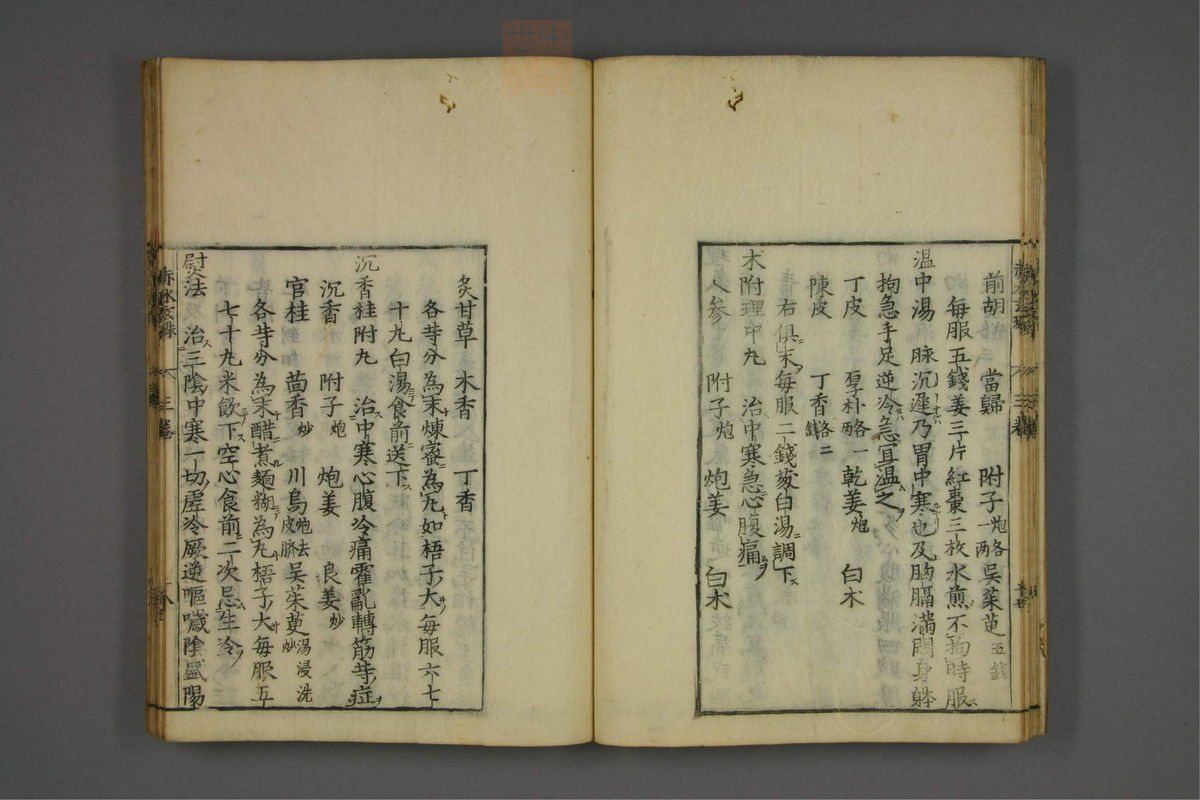 前胡 當歸 附子炮各一两 吳茱萸五錢
每服五錢姜三片紅棗三枚水煎不拘時服
温中湯 脉沉遲乃胃中寒也及胸膈滿悶身躰
拘急手足逆冷急宜温之
丁皮 厚朴各一两 乾姜炮 白术
陳皮 丁香各二錢
右俱末每服二錢葱白湯調下
木附理中丸 治中寒急心腹痛
人參 附子炮 炮姜 白术
炙甘草 木香 丁香
各䒭分為末煉蜜為丸如梧子大每服六七
十丸白湯食前送下
沉香桂附丸 治中寒心腹冷痛霍亂轉筋䒭症
沉香 附子炮 炮姜 良姜炒
官桂 茴香炒 川烏炮去皮臍 吳茱萸湯浸洗炒
各䒭分為末醋煮麺糊為丸梧子大每服五
七十丸米飲下空心食前二次忌生冷
熨法 治三陰中寒一切虚冷厥逆嘔噦陰盛陽